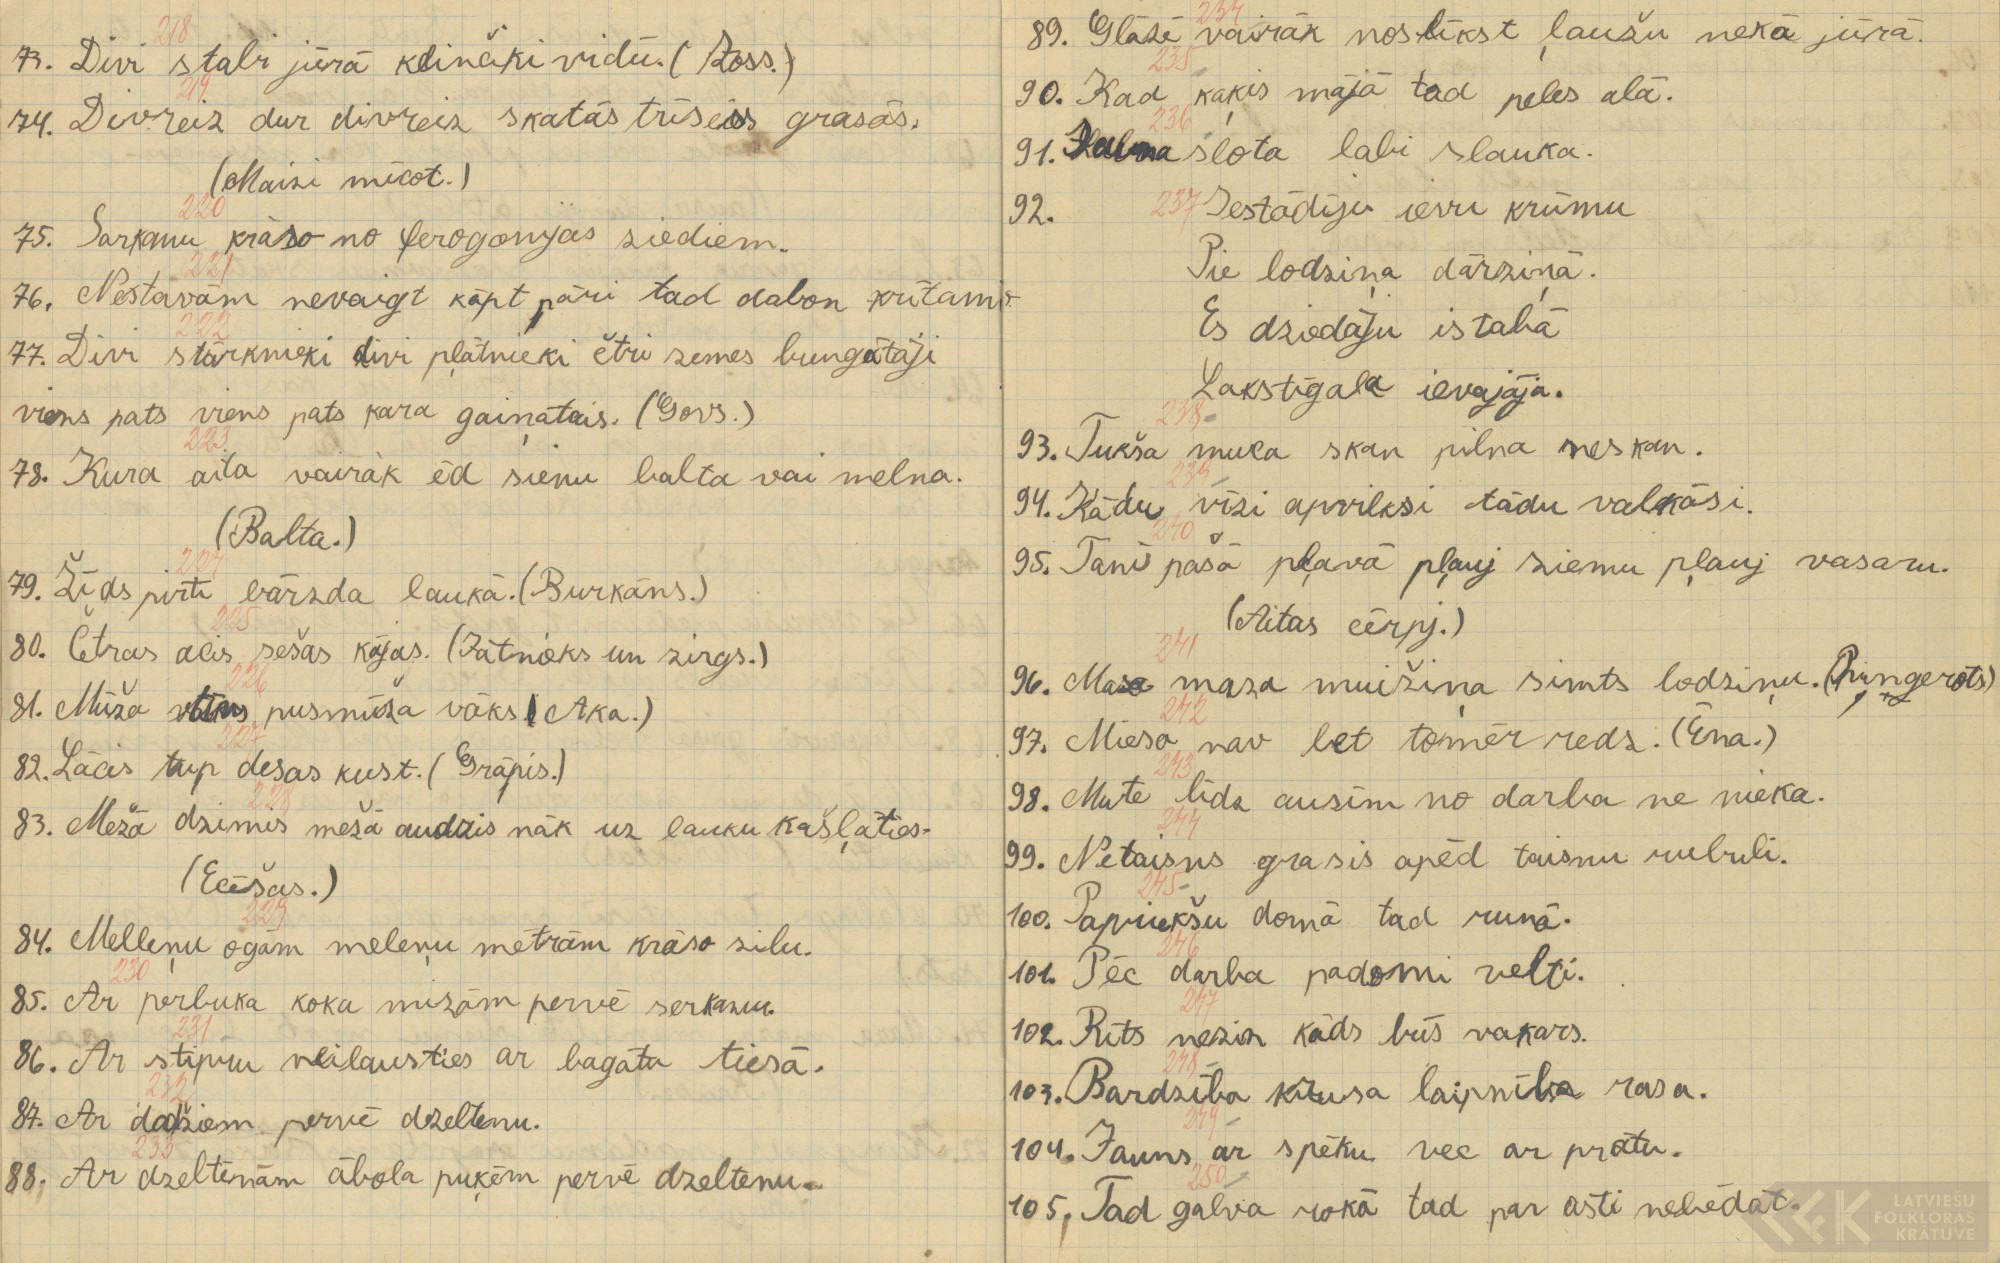 218
73. Divi stabi jūrā klinčiki vidū. (Zoss.)
219
74. Divreiz dur divreiz skatās trīseis grasās.
(Maizi mīcot.)
220
75. Sarkanu krāso no ģerogonijas ziediem.
221
76. Nestavām nevaigt kāpt pāri tad dabon krītamo
222
77. Divi stārknieki divi pļātnieki četri zemes bungātāji
viens pats viens pats kara gaiņatais. (Govs.)
223
78. Kura aita vairāk ēd sienu balta vai melna.
(Balta.)
224
79. Žīds pirtī bārzda laukā. (Burkāns.)
225
80. Četras acis sešas kājas. (Jātnieks un zirgs.)
226
81. Mūža pusmūža vāks (Aka.)
227
82. Lācis tup desas kust. (Grāpis.)
228
83. Mežā dzimis mežā audzis nāk uz lauku kašļāties-
(Ecēšas.)
229
84. Melleņu ogām meleņu mētrām krāso zilu.
230
85. Ar perbuka koka mizām pervē serkanu.
231
86. Ar stipru neilausties ar bagātu tiesā.
232
87. Ar dadžiem pervē dzeltenu.
233
88. Ar dzeltenām ābola puķēm pervē dzeltenu.
234
89. Glāzē vairāk noslīkst ļaužu nekā jūrā.
235
90. Kad kaķis mājā tad peles alā.
236
91. slota labi slauka.
92. 237 Iestādīju ievu krūmu
Pie lodziņa dārziņā.
Es dziedāju istabā
Lakstīgala ievajāja.
238
93. Tukša muca skan pilna neskan.
239
94. Kādu vīzi apvilksi tādu valkāsi.
240
95. Tanī pašā pļavā pļauj ziemu pļauj vasaru.
(Aitas cērpj.)
241
96. Maza maza muižiņa simts lodziņu. (Piņgerots)
242
97. Miesa nav bet tomēr redz. (Ēna.)
243
98. Mute līdz ausīm no darba ne nieka.
244
99. Netaisns grasis apēd taisnu rubuli.
245
100. Papriekšu domā tad runā.
246
101. Pēc darba padomi velti.
247
102. Rīts nezin kāds būs vakars.
248
103. Bardzība krusa laipnība rasa.
249
104. Jauns ar spēku vec ar prātu.
250
105. Tad galva rokā tad par asti nebēdāt.
LATVIEŠU
FOLKLORAS
KRĀTUVE